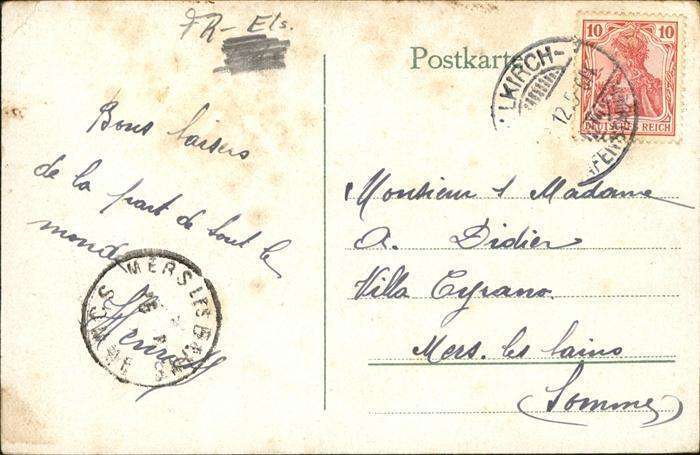 FR - Els.
Postkarte
10 10
DEUTSCHES REICH
LLKIRCH-
12.5
Bons baisers
de la part de tout le
monde
MERS LES BAINS
SOMME
Monsieur & Madame
A. Didier
Villa Cyrano
Mers. les bains
(Somme)